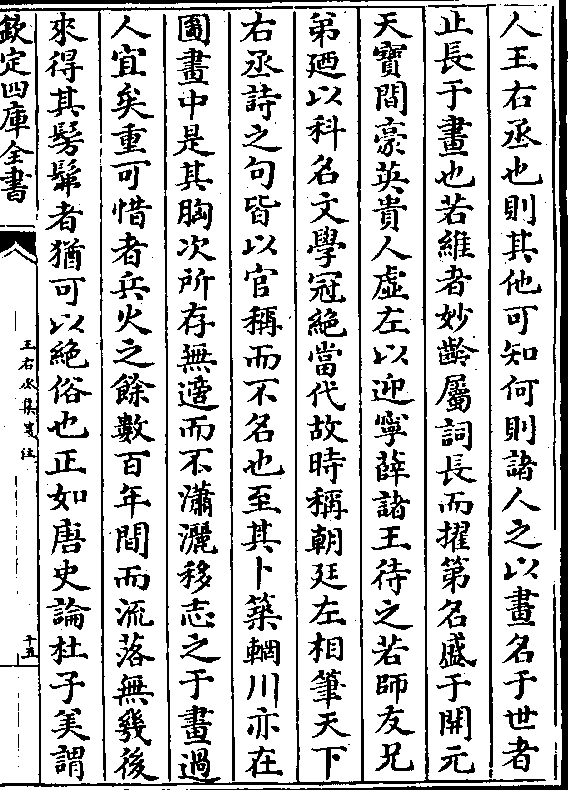 人王右丞也則其他可知何則諸人之以畫名于世者
止長于畫也若維者妙齡屬詞長而擢第名盛于開元
天寳間豪英貴人虛左以迎寧薛諸王待之若師友兄
弟廼以科名文學冠絶當代故時稱朝廷左相筆天下
右丞詩之句皆以官稱而不名也至其卜築輞川亦在
圖畫中是其胸次所存無適而不瀟灑移志之于畫過
人宜矣重可惜者兵火之餘數百年間而流落無幾後
來得其髣髴者猶可以絶俗也正如唐史論杜子美謂
欽定四庫全書
王右丞集箋注
十五